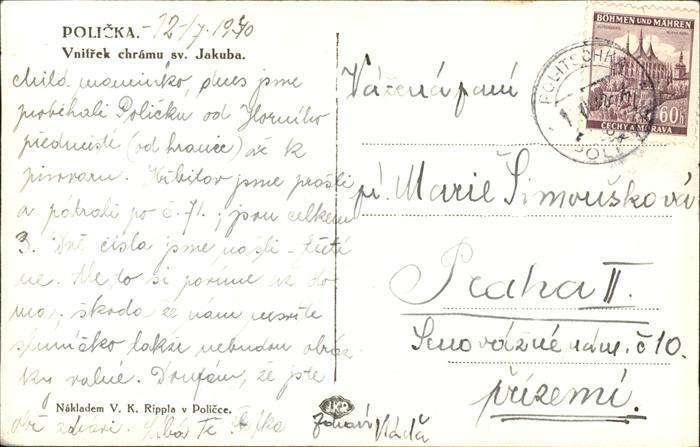 POLIČKA. -12/7. 1940
Vnitřek chrámu sv. Jakuba.
Milá maminko, dnes jsme
proběhali Poličku od Horního
předměstí (od hranic) až k
pivovaru. Hřbitov jsme prošli
a pátrali po č. 71.; jsou celkem
3. Dvě čísla jsme našli - třetí
ne. Ale to si povíme až do-
ma. škoda že nám nesvítí
sluníčko takže nebudou obráz-
ky valné. Doufám, že jste
Nákladem V. K. Rippla v Poličce.
zdraví. Líbá Tě
Zdraví Vláďa
BÖHMEN UND MÄHREN
60h
ČECHY A MORAVA
POLITSCHKA
Vážená paní
pí. Marie Šimoušková
Praha II.
Senovážné nám. č 10.
přízemí.